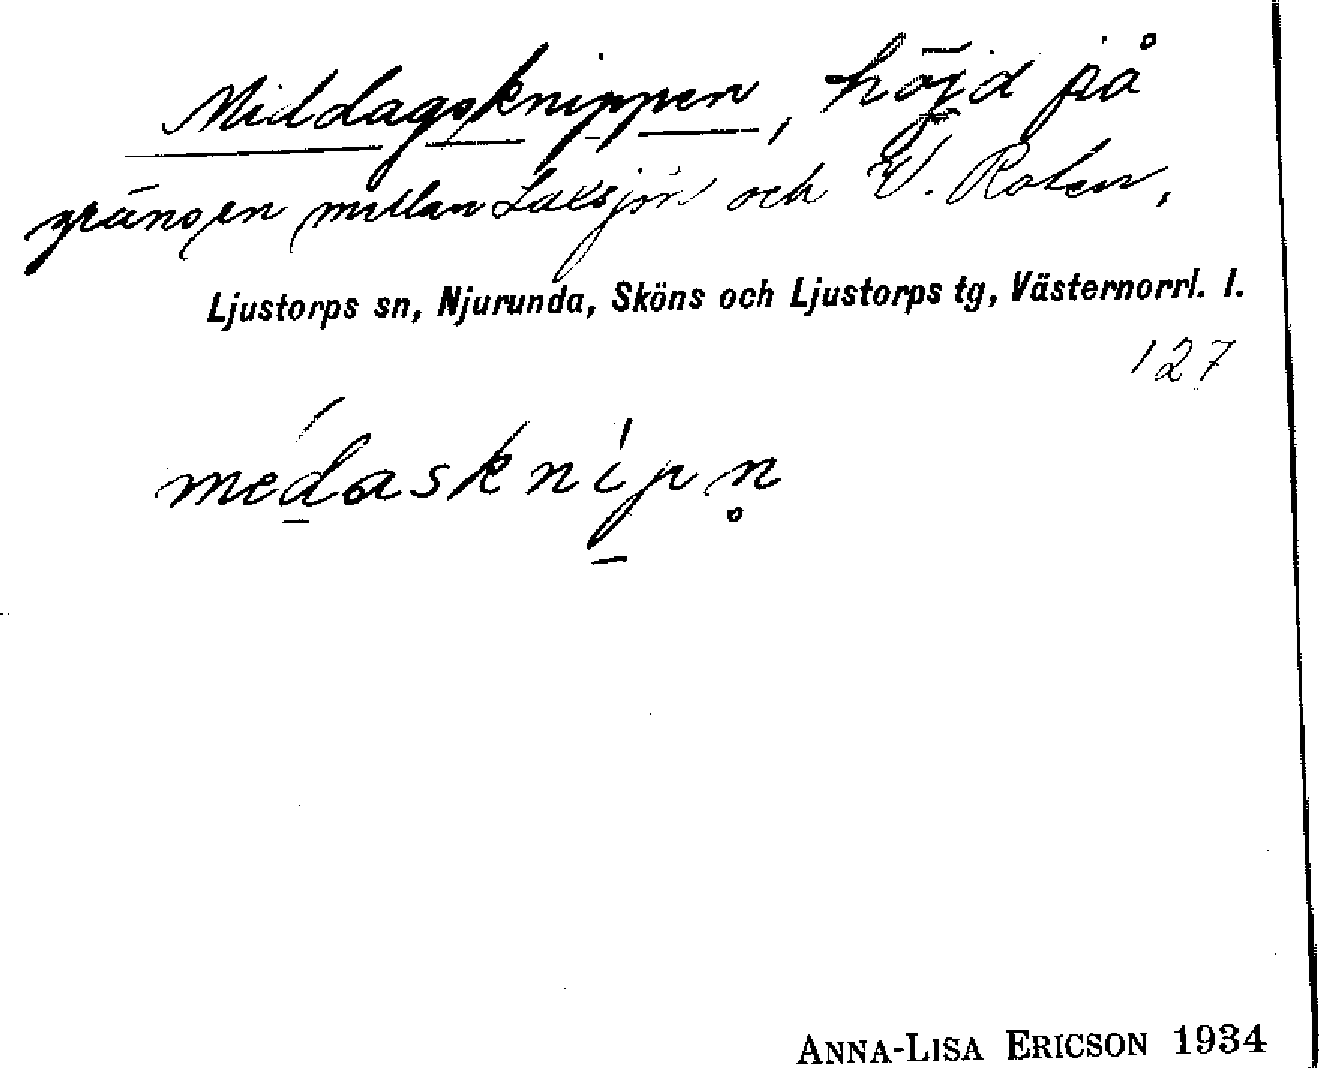 Middagsknippen, höjd på
gränsen mellan Laxsjön och V. Roten,
Ljustorps sn, Njurunda, Sköns och Ljustorps tg, Västernorrl. l.
127
médasknípn̥
ANNA-LISA ERICSON 1934